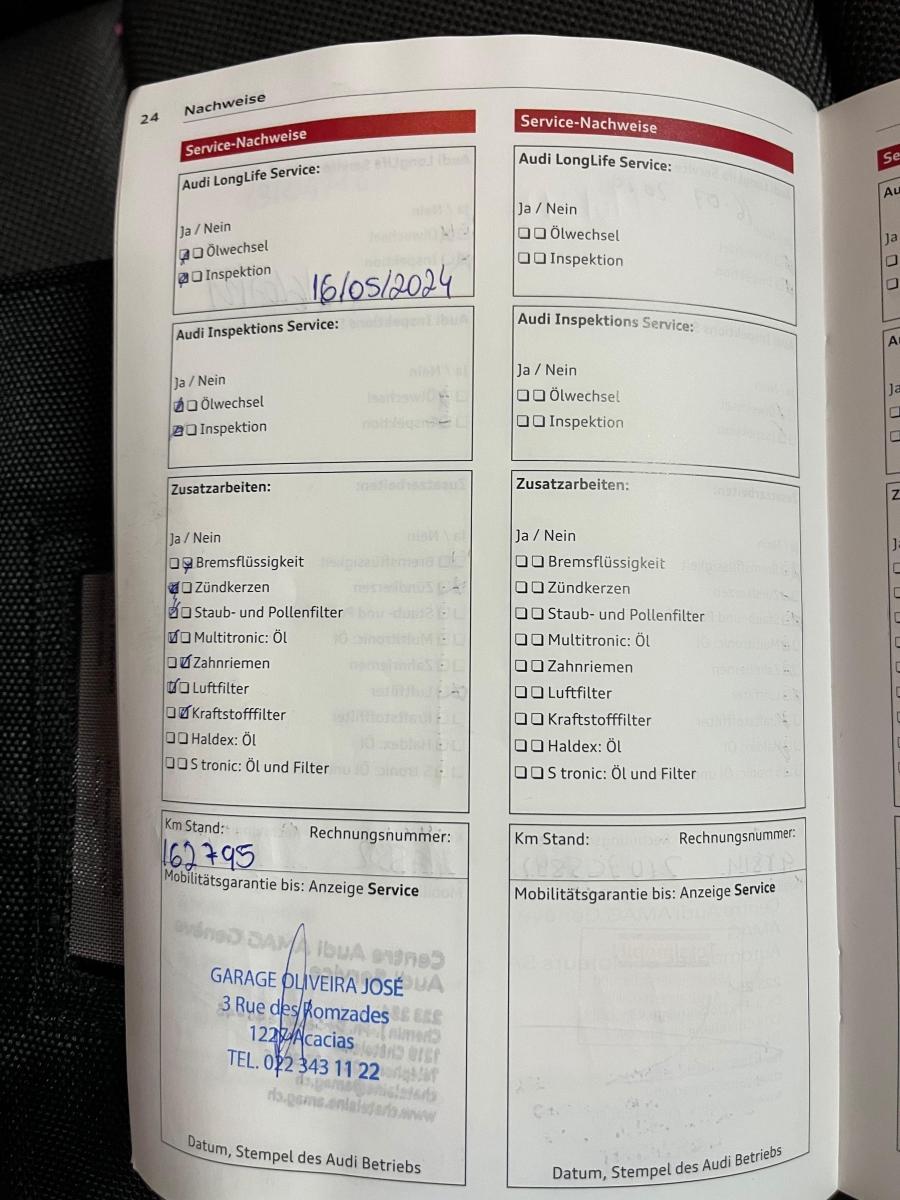 24 Nachweise
Service-Nachweise
Audi LongLife Service:
Ja / Nein
Ölwechsel
Inspektion
16/05/2024
Audi Inspektions Service:
Ja / Nein
Ölwechsel
Inspektion
Zusatzarbeiten:
Ja / Nein
Bremsflüssigkeit
Zündkerzen
Staub- und Pollenfilter
Multitronic: Öl
Zahnriemen
Luftfilter
Kraftstofffilter
Haldex: Öl
S tronic: Öl und Filter
Km Stand: Rechnungsnummer:
162795
Mobilitätsgarantie bis: Anzeige Service
GARAGE OLIVEIRA JOSÉ
3 Rue des Romzades
1227 Acacias
TEL. 022 343 11 22
Datum, Stempel des Audi Betriebs
Service-Nachweise
Audi LongLife Service:
Ja / Nein
Ölwechsel
Inspektion
Audi Inspektions Service:
Ja / Nein
Ölwechsel
Inspektion
Zusatzarbeiten:
Ja / Nein
Bremsflüssigkeit
Zündkerzen
Staub- und Pollenfilter
Multitronic: Öl
Zahnriemen
Luftfilter
Kraftstofffilter
Haldex: Öl
S tronic: Öl und Filter
Km Stand: Rechnungsnummer:
Mobilitätsgarantie bis: Anzeige Service
Datum, Stempel des Audi Betriebs
Se
Au
Ja
Ja